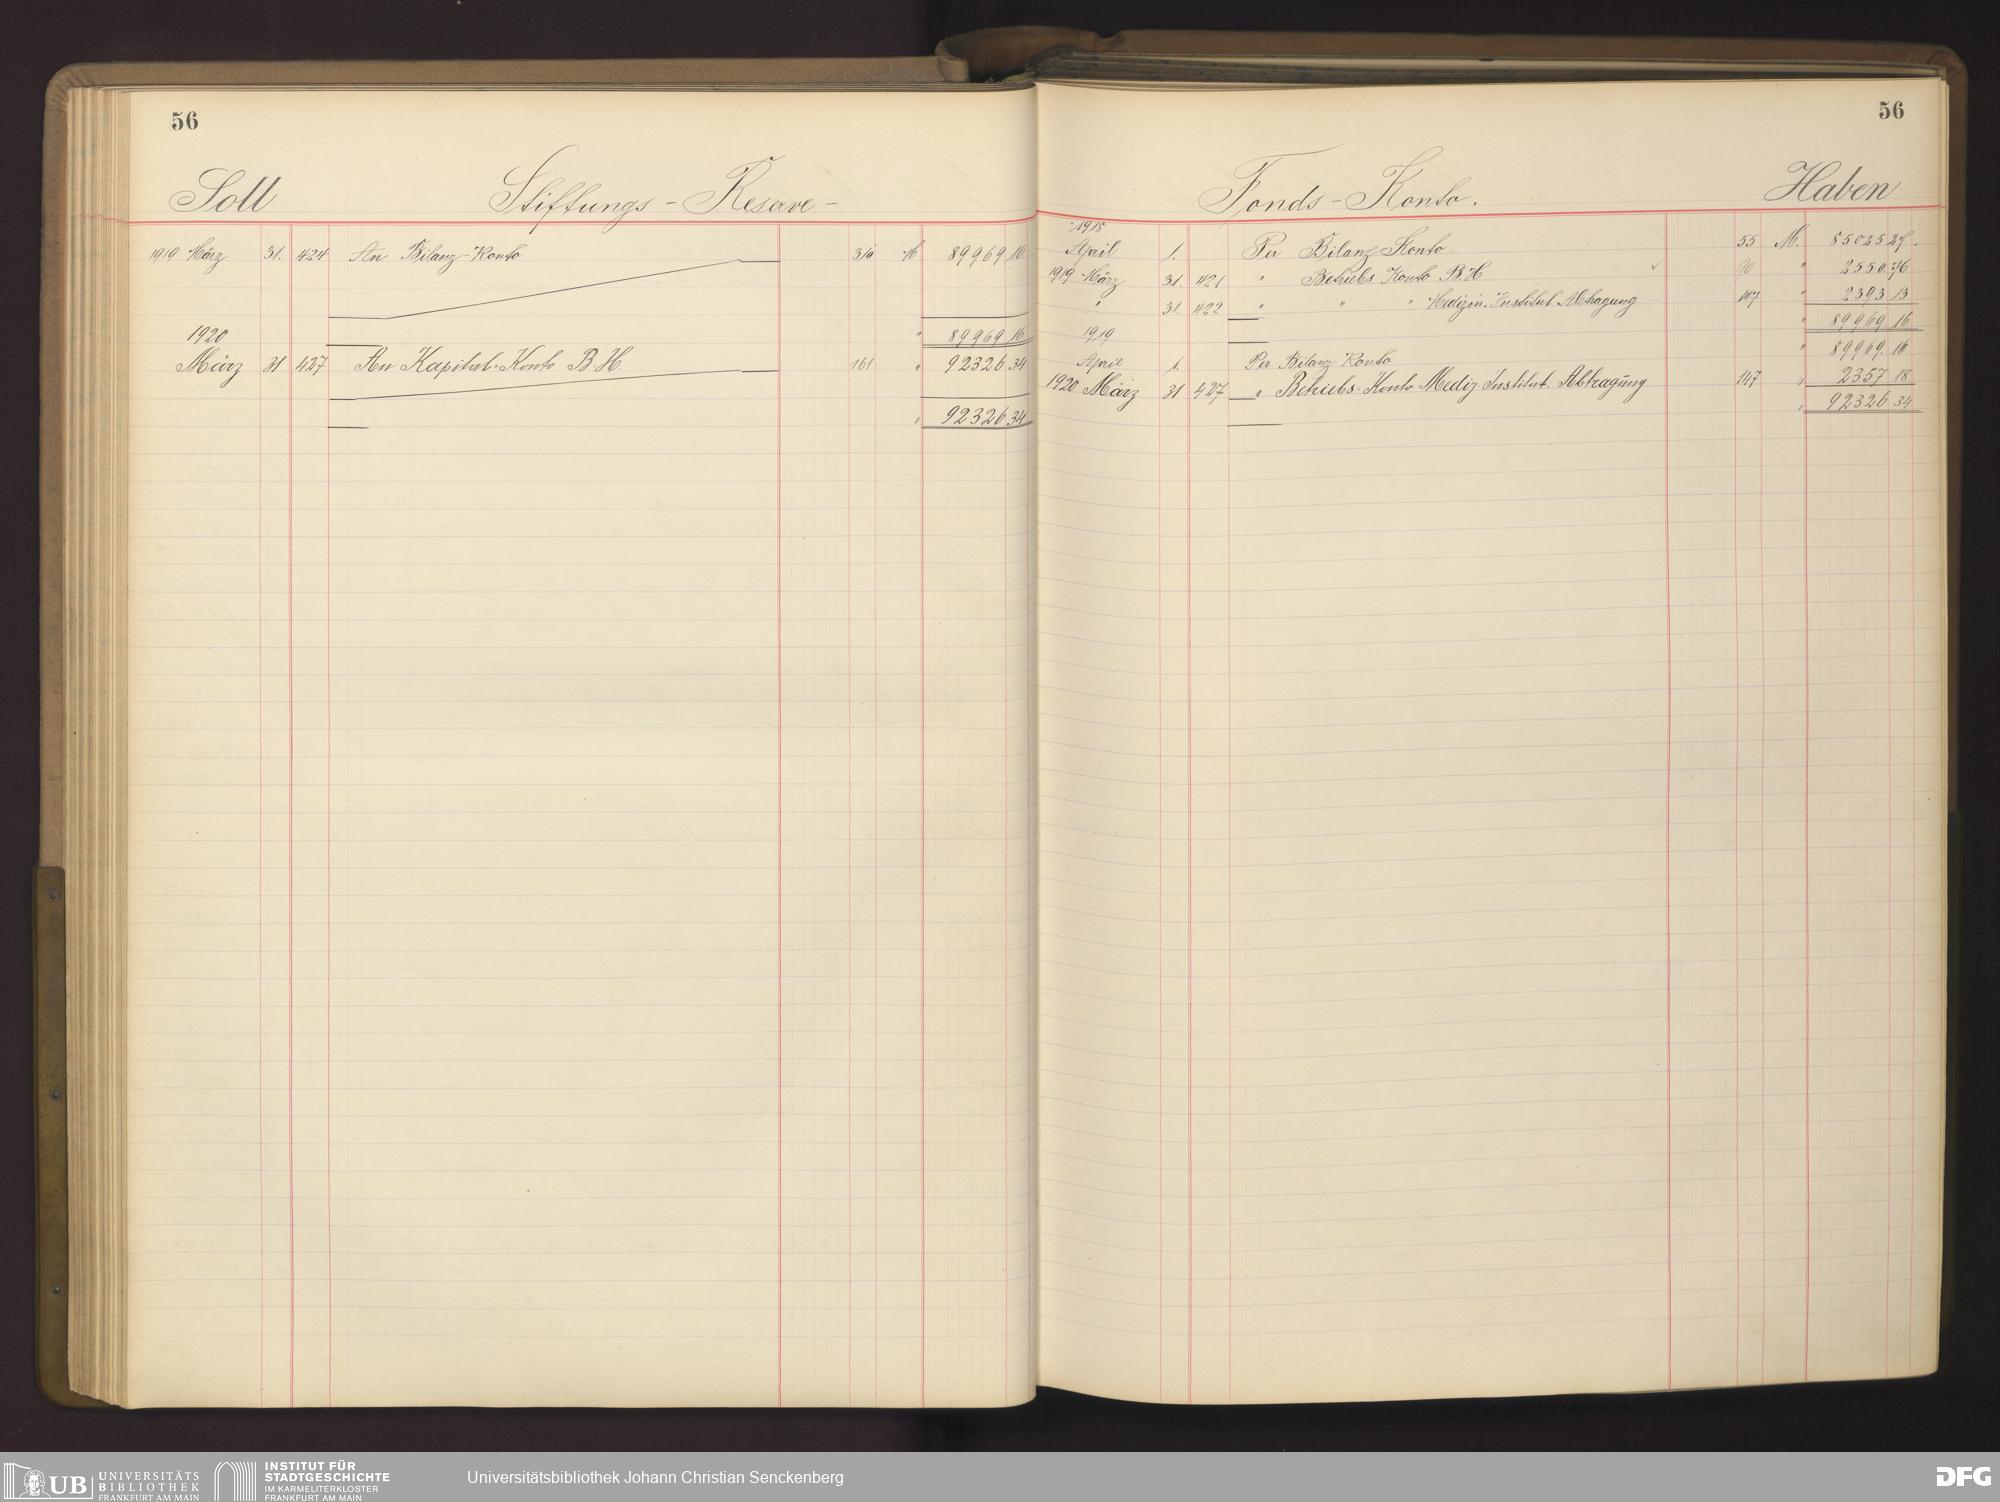 56
Soll Stiftungs-Reserve-
1919 März 31. 424 An Bilanz-Konto M 89969 16
" 89969 16
1920
März 31 427 An Kapital-Konto B. H. 161 " 92326 34
" 92326 34
56
Fonds-Konto. Haben
1918
April 1. Per Bilanz Konto 55 M. 85025 27
1919 März 31. 421 " Betriebs Konto B. H 90 " 2550.76
" 31. 422 " " " Medizin. Institut Abtragung 147 " 2393 13
" 89969 16
1919
April 1. Per Bilanz Konto " 89969. 16
1920 März 31 427 " Betriebs-Konto Mediz. Institut. Abtragung 147 " 2357 18
" 92326 34
UB UNIVERSITÄTS
BIBLIOTHEK
FRANKFURT AM MAIN
INSTITUT FÜR
STADTGESCHICHTE
IM KARMELITERKLOSTER
FRANKFURT AM MAIN
Universitätsbibliothek Johann Christian Senckenberg
DFG